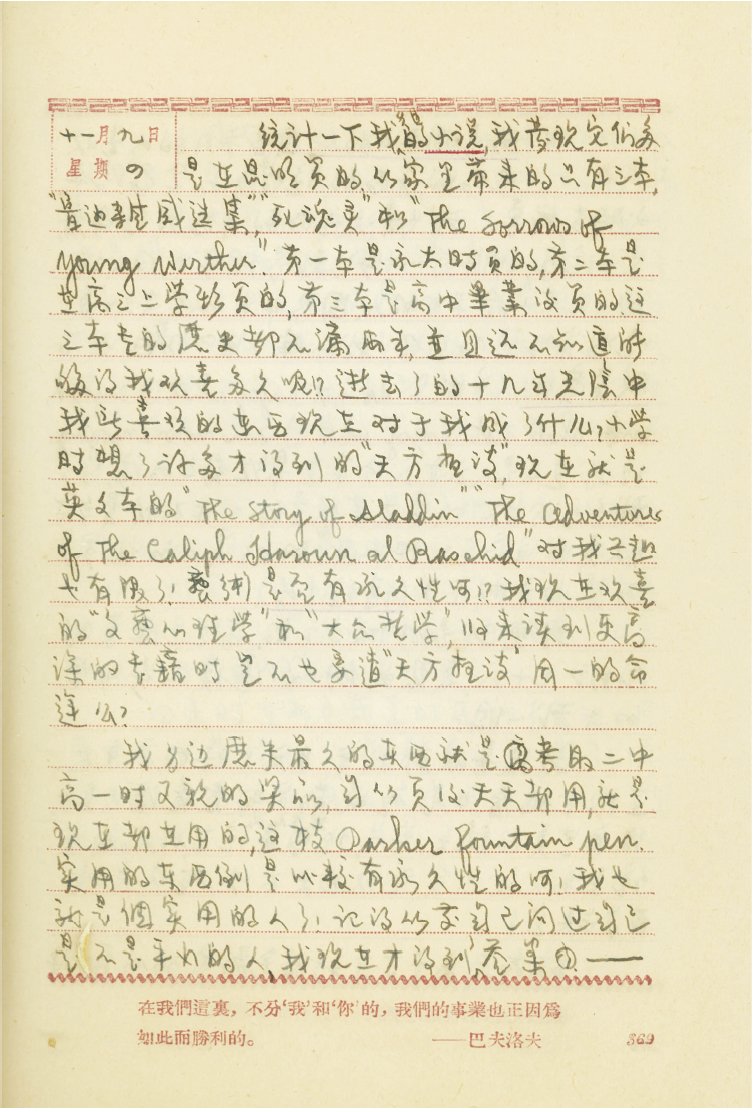 十一月九日
星期四
统计一下我看的小说,我发现它们多
是在昆明买的,从家里带来的只有三本,
"鲁迅杂感选集""死魂灵"和"The Sorrows of
Young Werther". 第一本是永大时买的,第二本是
在高三上学期买的,第三本是高中毕业后买的.这
三本书的历史都不满两年,並且还不知道能
够得我欢喜多久呢!?逝去了的十九年光阴中
我所喜欢的东西现在对于我成了什么?小学
时想了许多才得到的"天方夜谈",现在就是
英文本的"The Story of Aladdin""The Adventures
of The Caliph Haroun al Raschid"对我兴趣
也有限了.艺術是否有永久性呵!?我现在欢喜
的"文藝心理学"和"大众哲学",将来读到更高
深的書籍时岂不也要遭"天方夜谈"同一的命
运么?
我身边历史最久的东西就是高考取二中
高一时父親的奖品,自从买后天天都用,就是
现在都在用的,这枝Parker fountain pen.
实用的东西倒是比较有永久性的呵!我也
就是個实用的人了!记得从前自己问过自己
是不是平凡的人,我现在才得到答案 ——
在我們這裏,不分'我'和'你'的,我們的事業也正因爲
如此而勝利的。
——巴夫洛夫
369